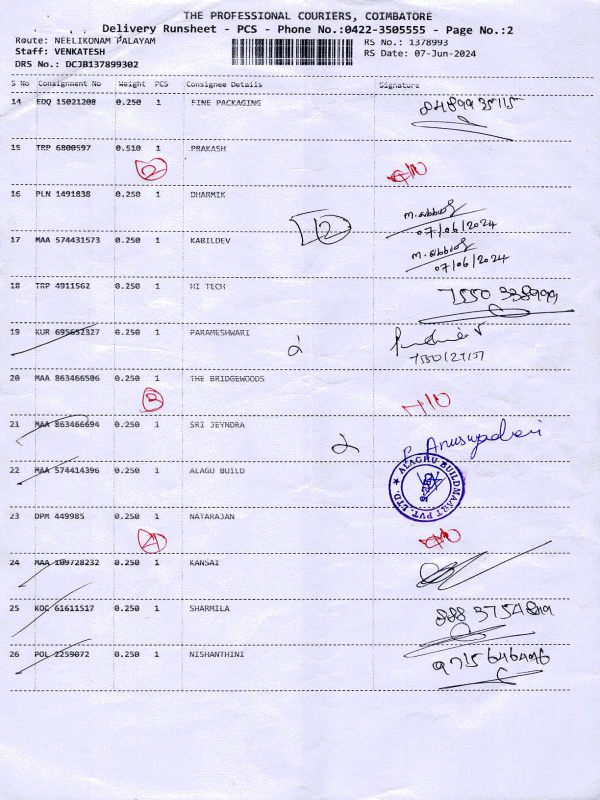 THE PROFESSIONAL COURIERS, COIMBATORE
Delivery Runsheet - PCS - Phone No.:0422-3505555 - Page No.:2
Route: NEELIKONAM PALAYAM RS No.: 1378993
Staff: VENKATESH RS Date: 07-Jun-2024
DRS No.: DCJB137899302
S No Consignment No Weight PCS Consignee Details Signature
14 EDQ 15021208 0.250 1 FINE PACKAGING
15 TRP 6800597 0.510 1 PRAKASH
2
16 PLN 1491838 0.250 1 DHARMIK
12 07/06/2024
17 MAA 574431573 0.250 1 KABILDEV
07/06/2024
18 TRP 4911562 0.250 1 HI TECH
19 KUR 695652327 0.250 1 PARAMESHWARI
2
20 MAA 863466506 0.250 1 THE BRIDGEWOODS
21 MAA 863466694 0.250 1 SRI JEYNDRA
2
22 MAA 574414396 0.250 1 ALAGU BUILD
ALAGHU BUILDMAART PVT. LTD.
23 DPM 449985 0.250 1 NATARAJAN
24 MAA 109728232 0.250 1 KANSAI
25 KOC 61611517 0.250 1 SHARMILA
26 POL 2259072 0.250 1 NISHANTHINI
9715646496